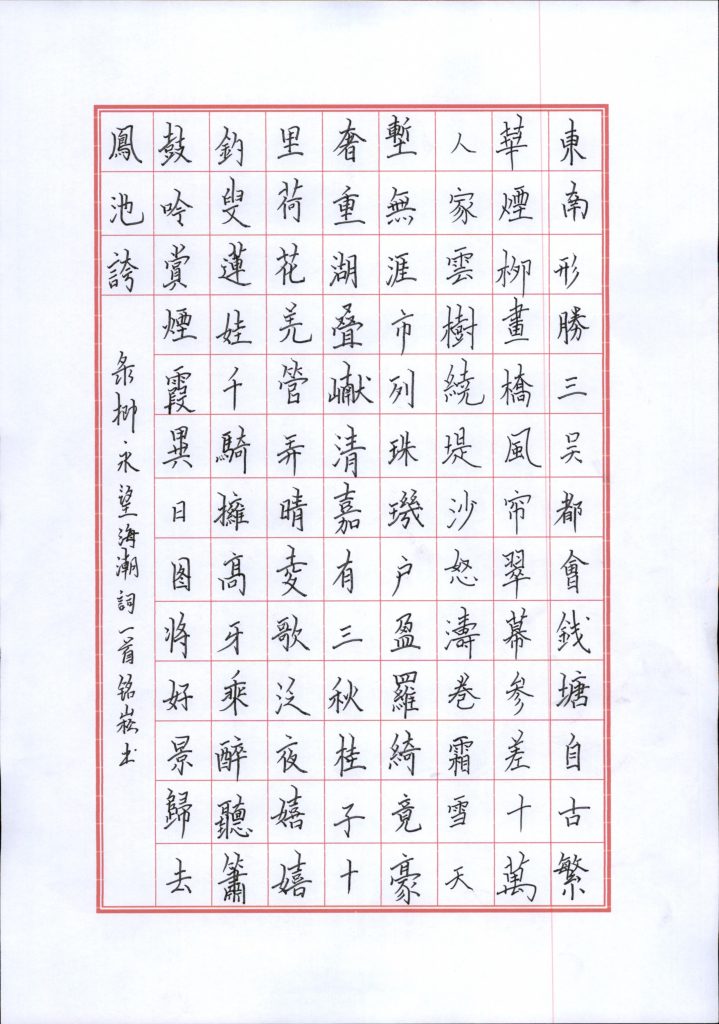 東南形勝三吴都會錢塘自古繁
華煙柳畫橋風帘翠幕参差十萬
人家雲樹繞堤沙怒濤卷霜雪天
塹無涯市列珠璣户盈羅綺竟豪
奢重湖叠巘清嘉有三秋桂子十
里荷花羌管弄晴菱歌泛夜嬉嬉
釣叟蓮娃千騎擁高牙乘醉聽簫
鼓吟賞煙霞異日图将好景歸去
鳳池誇
录柳永望海潮詞一首铭崧书